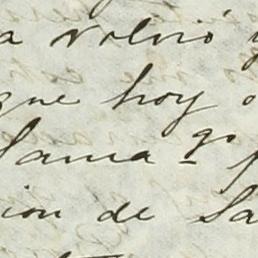 a volvió y
que hoy
Sama-go
ion de Sa